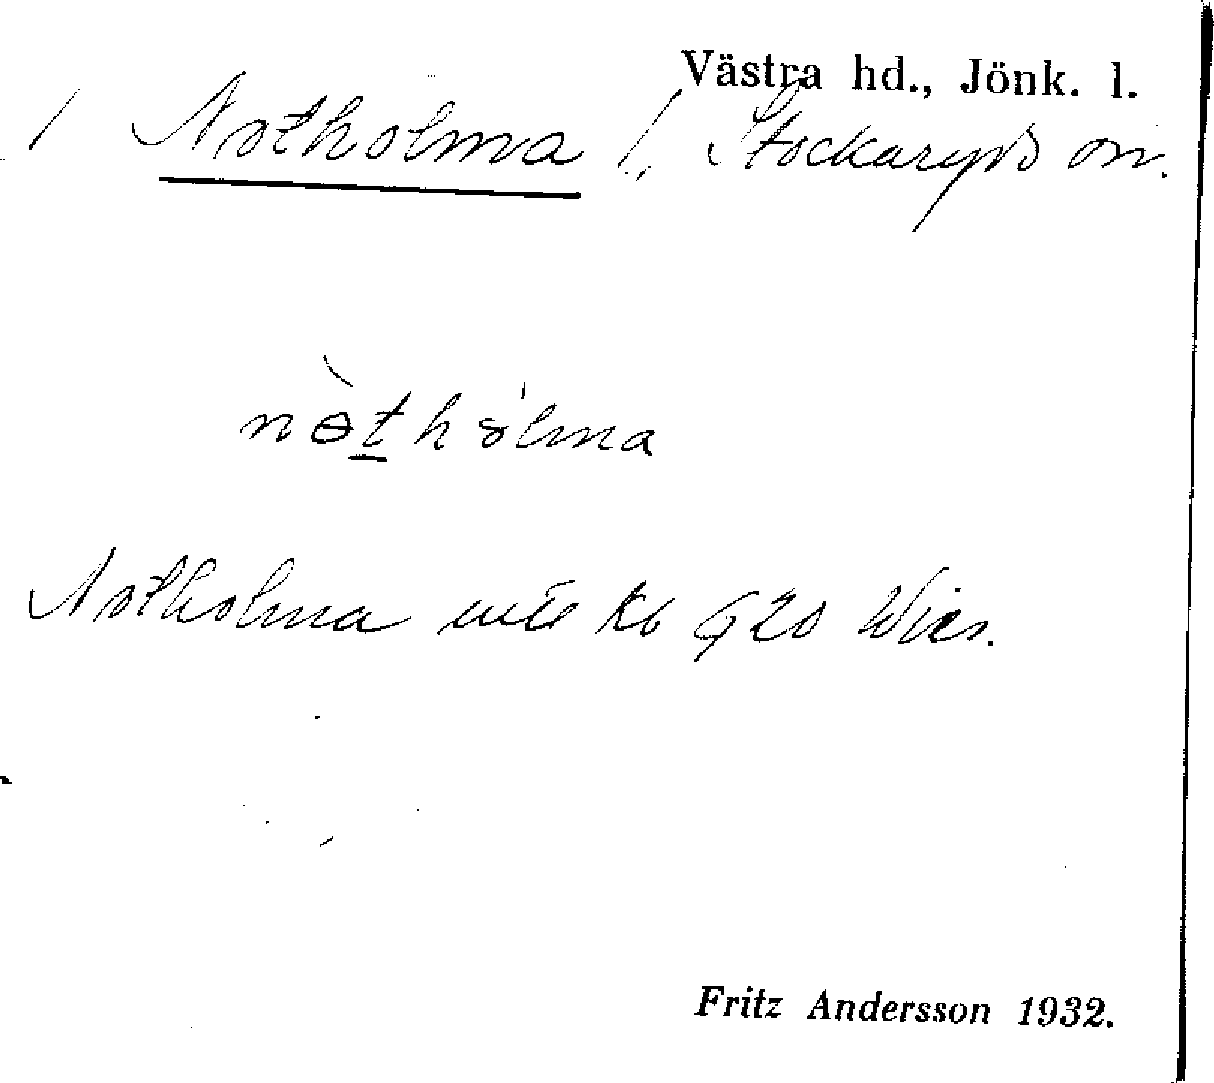 Västra hd., Jönk. l.
/ Notholma /, Stockaryds sn.
nòthòlma
Notholma uté kb G20 Wies.
Fritz Andersson 1932.